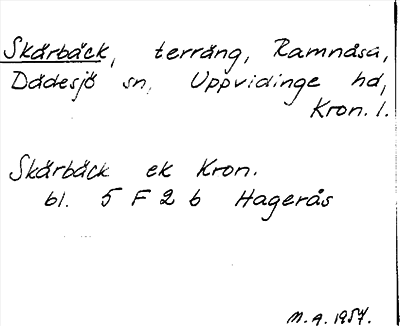 Skärbäck, terräng, Ramnåsa,
Dädesjö sn, Uppvidinge hd,
Kron. l.
Skärbäck ek Kron.
bl. 5 F 2 b Hagerås
M.A. 1957.